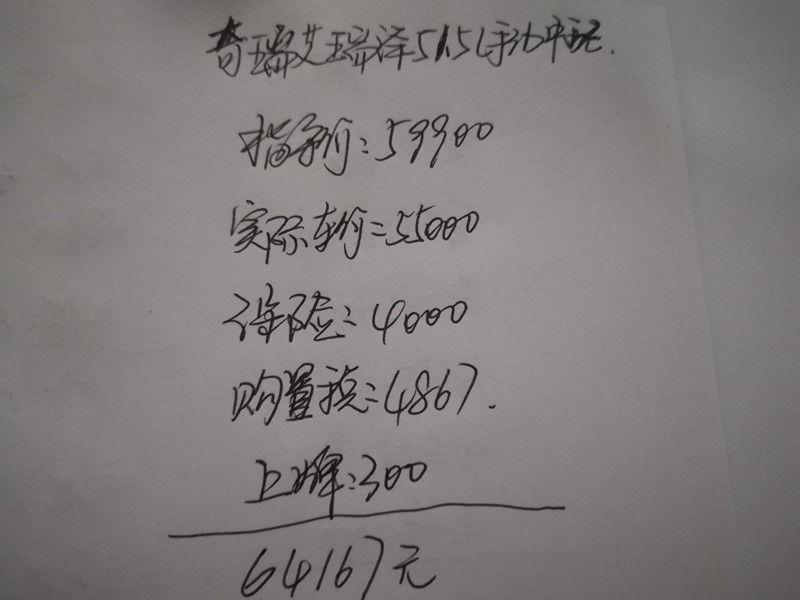 奇瑞艾瑞泽5 1.5L手动中配.
指导价:59900
实际车价=55000
保险:4000
购置税:4867.
上牌:300
64167元